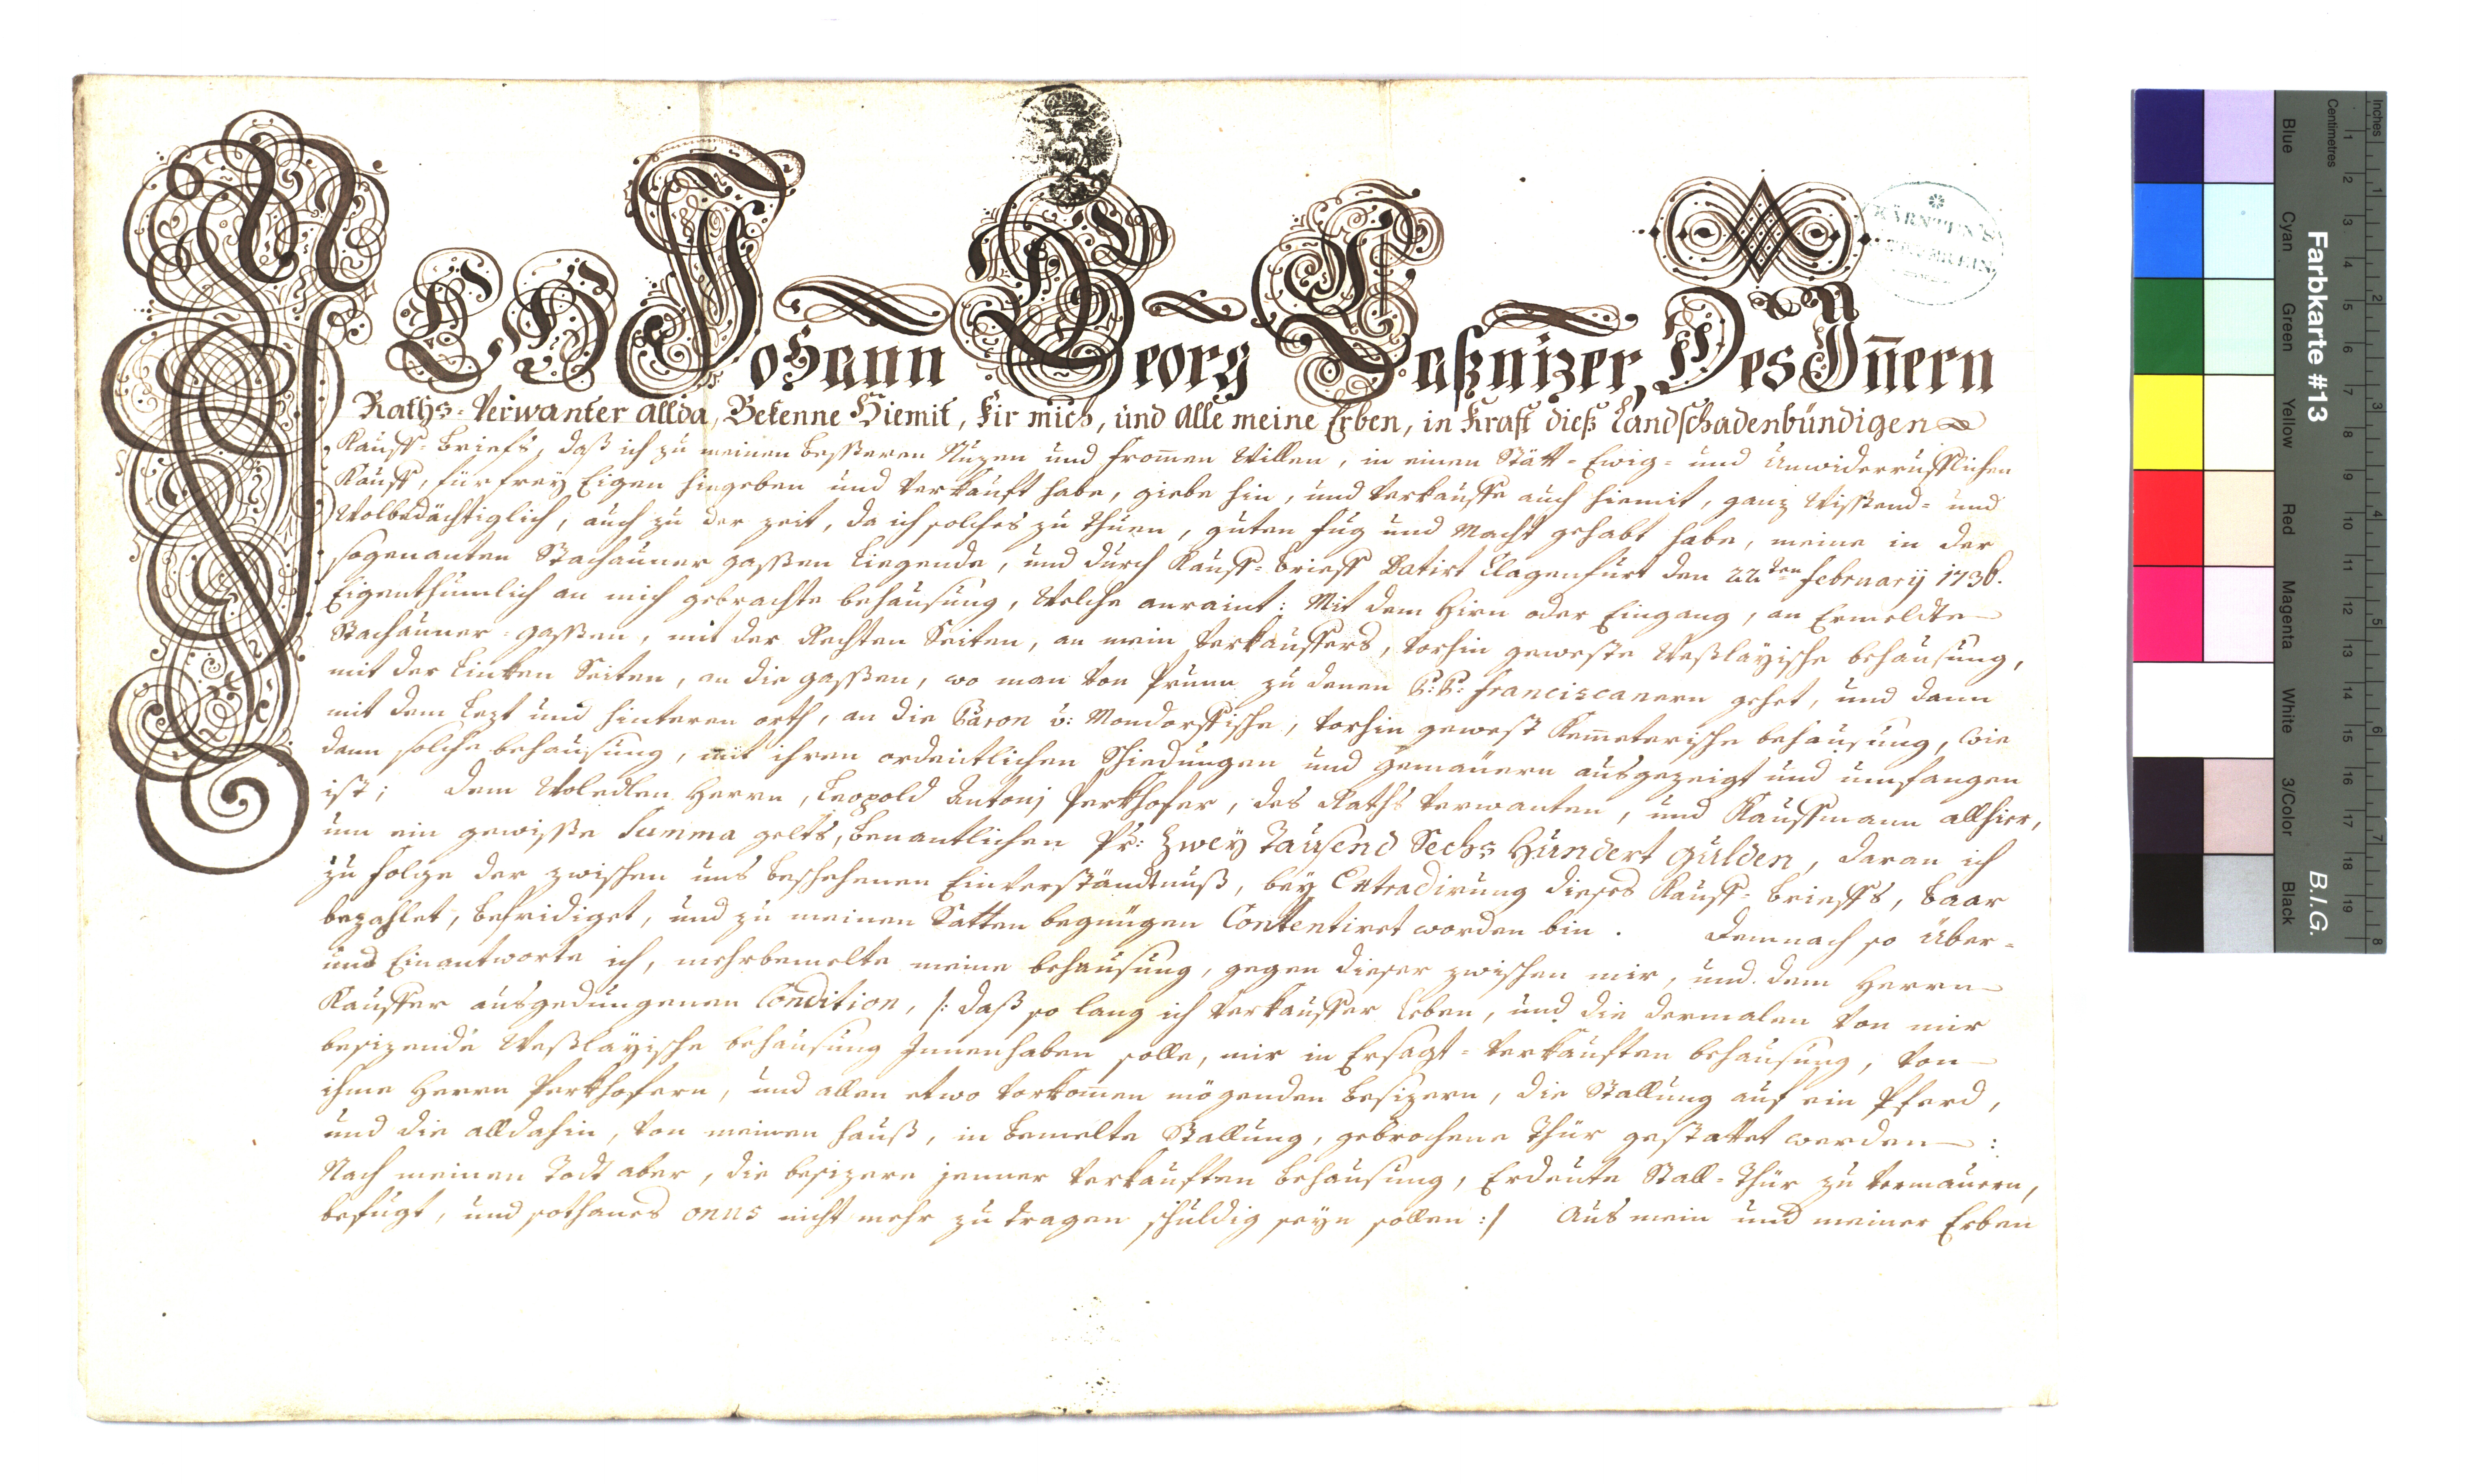 ICH Johann Georg Paßnizer, Des Iñern
Raths-Verwanter allda, Bekenne Hiemit, Fir mich, und Alle meine Erben, in Kraft dieß Landschadenbündigen
Kauff-Briefs, daß ich zu meinen besseren Nuzen und fromen Willen, in einen Stätt-Ewig- und Unwiderrufflichen
Kauff, für frey Eigen hingeben und verkauft habe, giebe hin, und verkauffe auch hiemit, ganz Wissend- und
Wolbedächtiglich, auch zu der zeit, da ich solches zu thuen, guten fug und Macht gehabt habe, meine in der
sogenanten Stachauner gassen liegende, und durch Kauff-Brieff Datirt Clagenfurt den 22ten February 1736.
Eigenthumlich an mich gebrachte behausung, Welche anraint: Mit dem Hirn oder Eingang, an Ermeldte
Stachauner-gassen, mit der Rechten Seiten, an mein Verkauffers, vorhin geweste Weßlayische behausung,
mit der Linken Seiten, an die gassen, wo man von Prunn zu denen P:P: Franciscanern gehet, und dann
mit dem Lezt und hinteren orth, an die Baron v: Mondorffische, vorhin gewest Kem̄eterische behausung, wie
dann solche behausung, mit ihren ordentlichen Schiedungen und gemäuern ausgezeigt und umfangen
ist; Dem Woledlen Herrn, Leopold Antonj Perkhofer, des Raths Verwanten, und Kauffmann allhier,
um ein gewisse Summa gelts, benantlichen Pr: Zwey Tausend Sechs Hundert Gulden, daran ich
zu folge der zwischen uns beschehenen Einverständtnuß, bey Extradirung dieses Kauff-Brieffs, baar
bezahlet, befridiget, und zu meinen Satten begnügen Contentiret worden bin. Demnach so über-
und Einantworte ich, mehrbemelte meine behausung, gegen dieser zwischen mir, und dem Herrn
Kauffer ausgedungenen Condition, /: daß so lang ich Verkauffer leben, und die dermalen von mir
besizende Weßlayische behausung Innenhaben solle, mir in Ersagt-verkauften behausung, von
ihme Herrn Perkhofern, und allen etwo vorkom̄en mögenden besizern, die Stallung auf ein Pferd,
und die alldahin, von meinen hauß, in bemelte Stallung, gebrochene Thür gestattet werden:
Nach meinen Todt aber, die besizere jenner verkauften behausung, Erdeute Stall-Thür zu vermauern,
befugt, und sothanes onus nicht mehr zu tragen schuldig seyn sollen :/ Aus mein und meiner Erben
Farbkarte #13
B.I.G.
Inches
Centimetres
Blue
Cyan
Green
Yellow
Red
Magenta
White
3/Color
Black
1 2 3 4 5 6 7 8 9 10 11 12 13 14 15 16 17 18 19
1 2 3 4 5 6 7 8